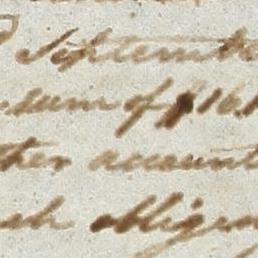 Septembe
sum of $16.
ther account
obligin